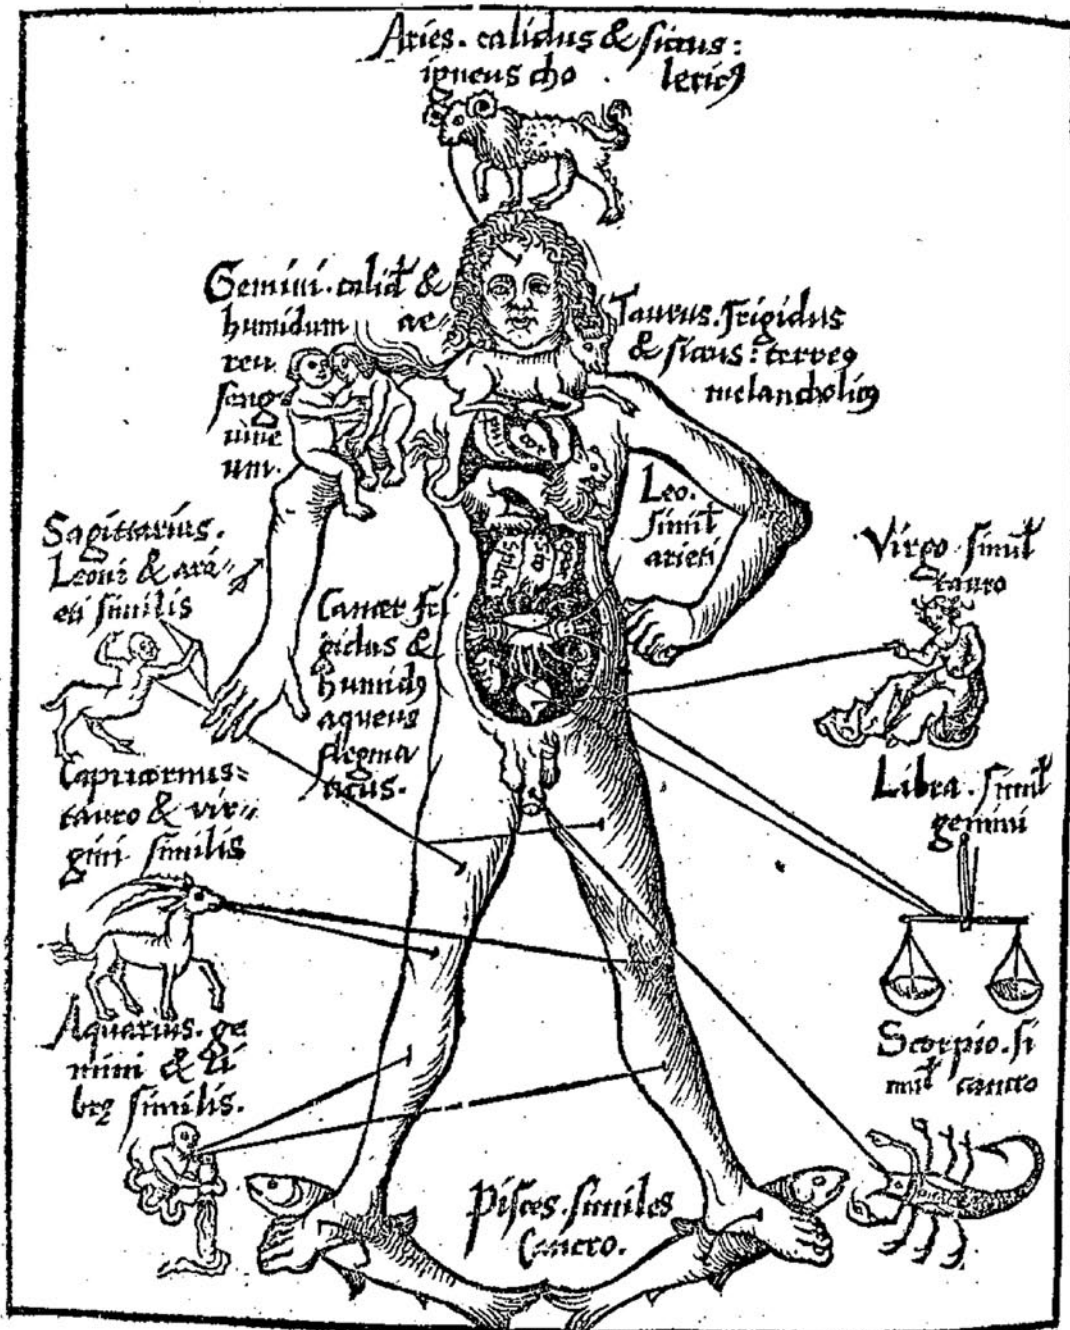 Aries. calidus & siccus:
igneus cho lericꝰ
Gemini. calid &
humidum ae-
reu
sang
uine
um.
Taurus. frigidus
& siccus: terreꝰ
melancholicꝰ
Leo.
simil
arieti
Sagittarius.
Leoni & ari-
eti similis
Cancer fri
gidus &
humidꝰ
aqueus
flegma
ticus.
Virgo. simil
tauro
Capricornus=
tauro & vir=
gini similis
Libra. simil
gemini
Aquarius. ge
mini & li
brę similis.
Scorpio. si
mil cancro
Pisces. similes
Cancro.